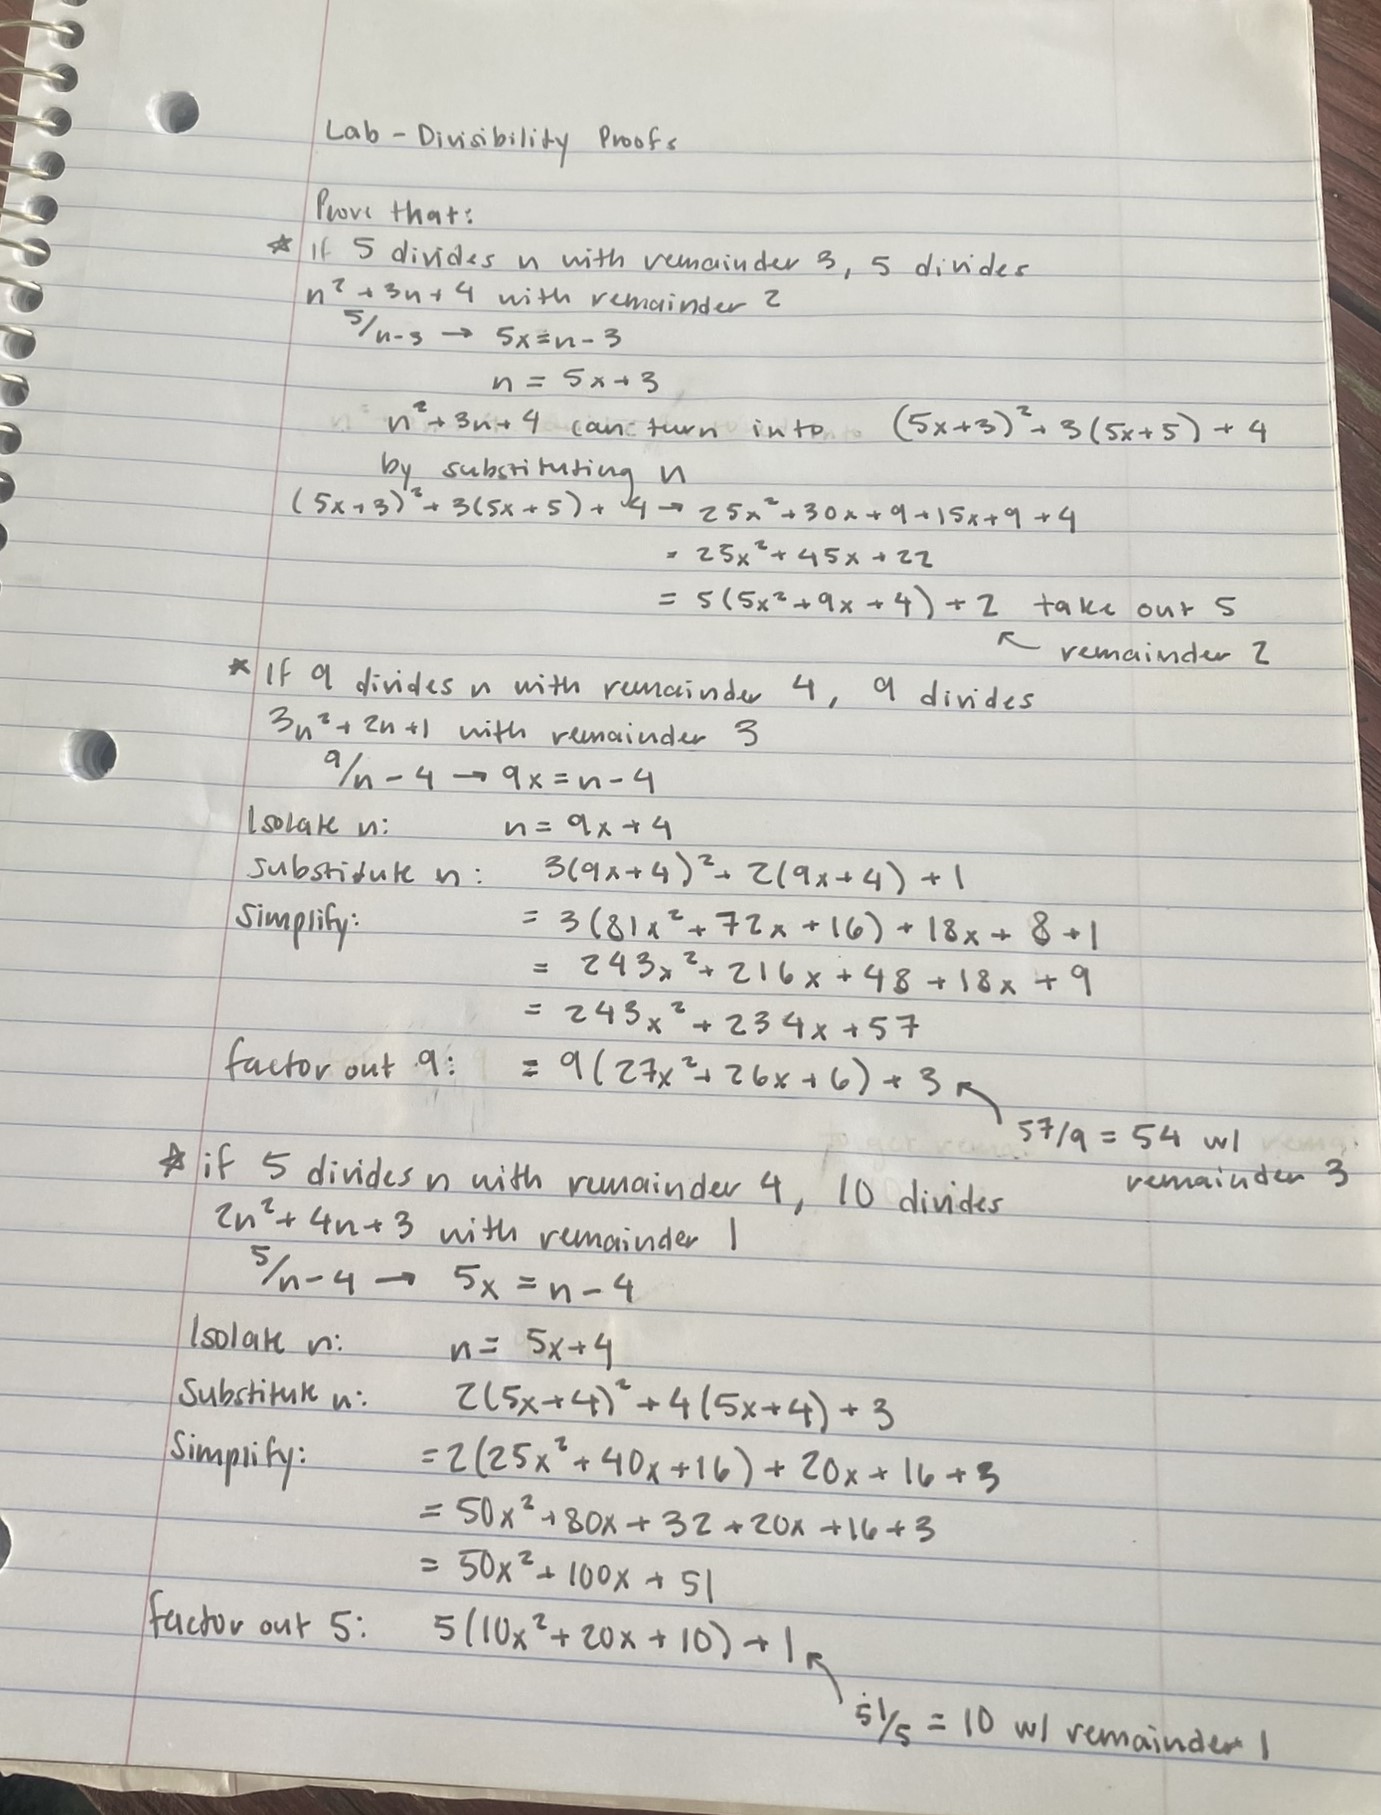 Lab - Divisibility Proofs
Prove that:
* If 5 divides n with remainder 3, 5 divides
n² + 3n + 4 with remainder 2
5/n-3 → 5x = n - 3
n = 5x + 3
n² + 3n + 4 can turn into (5x+3)² + 3(5x+5) + 4
by substituting n
(5x+3)² + 3(5x+5) + 4 → 25x² + 30x + 9 + 15x + 9 + 4
= 25x² + 45x + 22
= 5(5x² + 9x + 4) + 2 take out 5
↖ remainder 2
* If 9 divides n with remainder 4, 9 divides
3n² + 2n + 1 with remainder 3
9/n - 4 → 9x = n - 4
Isolate n: n = 9x + 4
Substidute n: 3(9x+4)² + 2(9x+4) + 1
Simplify: = 3(81x² + 72x + 16) + 18x + 8 + 1
= 243x² + 216x + 48 + 18x + 9
= 243x² + 234x + 57
factor out 9: = 9(27x² + 26x + 6) + 3 ↖
57/9 = 54 w/
remainder 3
* if 5 divides n with remainder 4, 10 divides
2n² + 4n + 3 with remainder 1
5/n-4 → 5x = n - 4
Isolate n: n = 5x + 4
Substitute n: 2(5x+4)² + 4(5x+4) + 3
Simplify: = 2(25x² + 40x + 16) + 20x + 16 + 3
= 50x² + 80x + 32 + 20x + 16 + 3
= 50x² + 100x + 51
factor out 5: 5(10x² + 20x + 10) + 1 ↖
51/5 = 10 w/ remainder 1